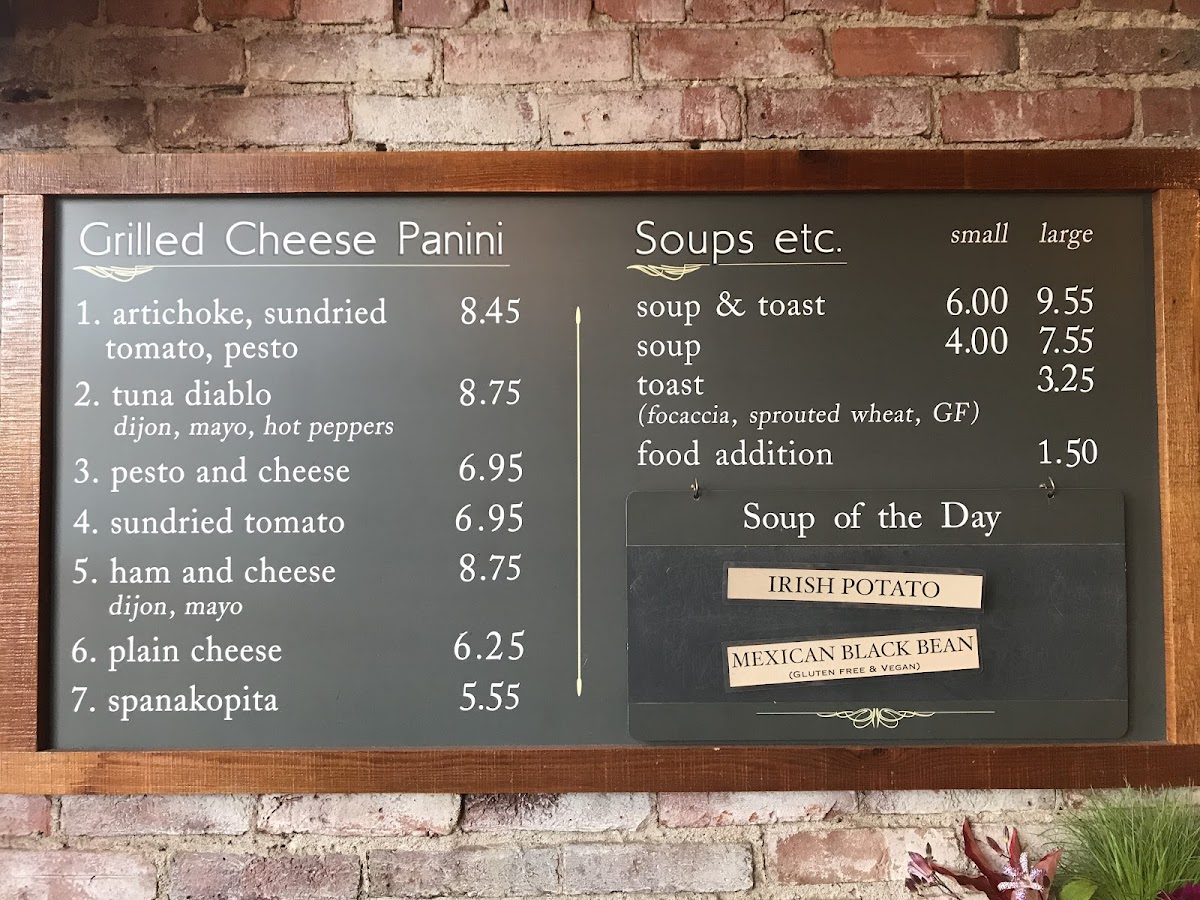 Grilled Cheese Panini
1. artichoke, sundried 8.45
tomato, pesto
2. tuna diablo 8.75
dijon, mayo, hot peppers
3. pesto and cheese 6.95
4. sundried tomato 6.95
5. ham and cheese 8.75
dijon, mayo
6. plain cheese 6.25
7. spanakopita 5.55
Soups etc. small large
soup & toast 6.00 9.55
soup 4.00 7.55
toast 3.25
(focaccia, sprouted wheat, GF)
food addition 1.50
Soup of the Day
IRISH POTATO
MEXICAN BLACK BEAN
(GLUTEN FREE & VEGAN)